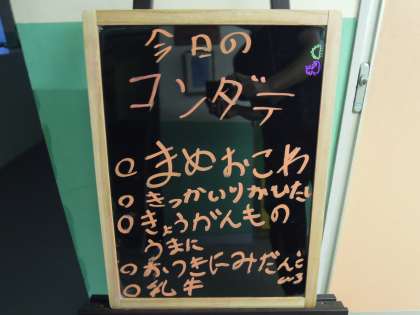 今日の
コンダテ
○まめおこわ
○きっかいりかひたし
○きょうがんもの
うまに
○おつきにみだんご
○乳牛